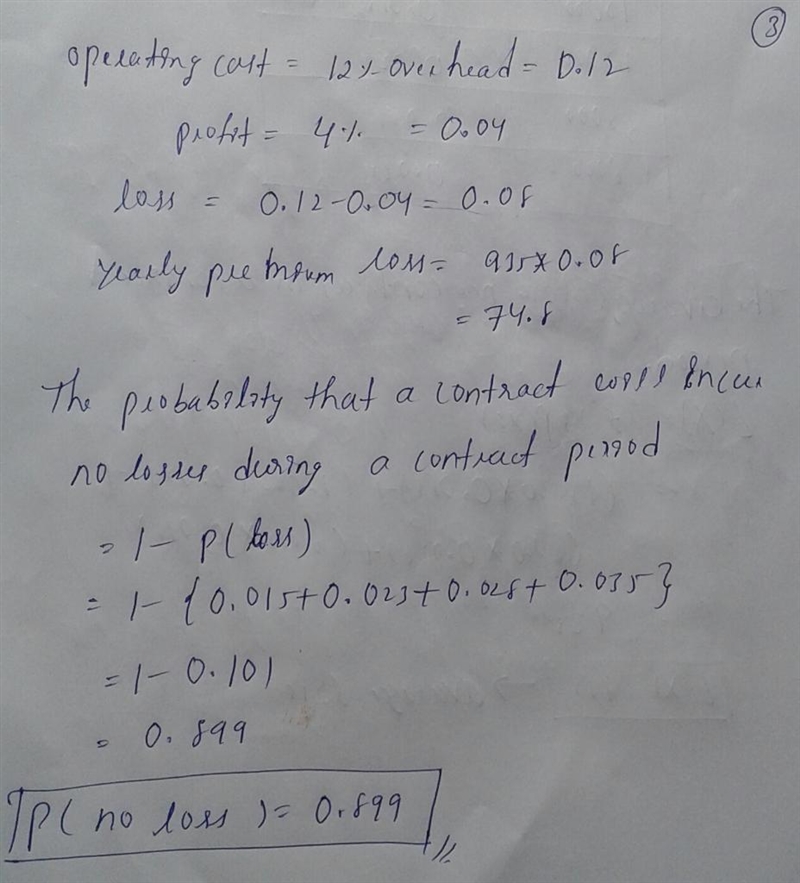 3
operating cost = 12% overhead = 0.12
profit = 4% = 0.04
loss = 0.12-0.04 = 0.08
yearly premium loss = 935*0.08
= 74.8
The probability that a contract will incur
no losses during a contract period
= 1- P(loss)
= 1- {0.015+0.023+0.028+0.035}
= 1- 0.101
= 0.899
P( no loss ) = 0.899